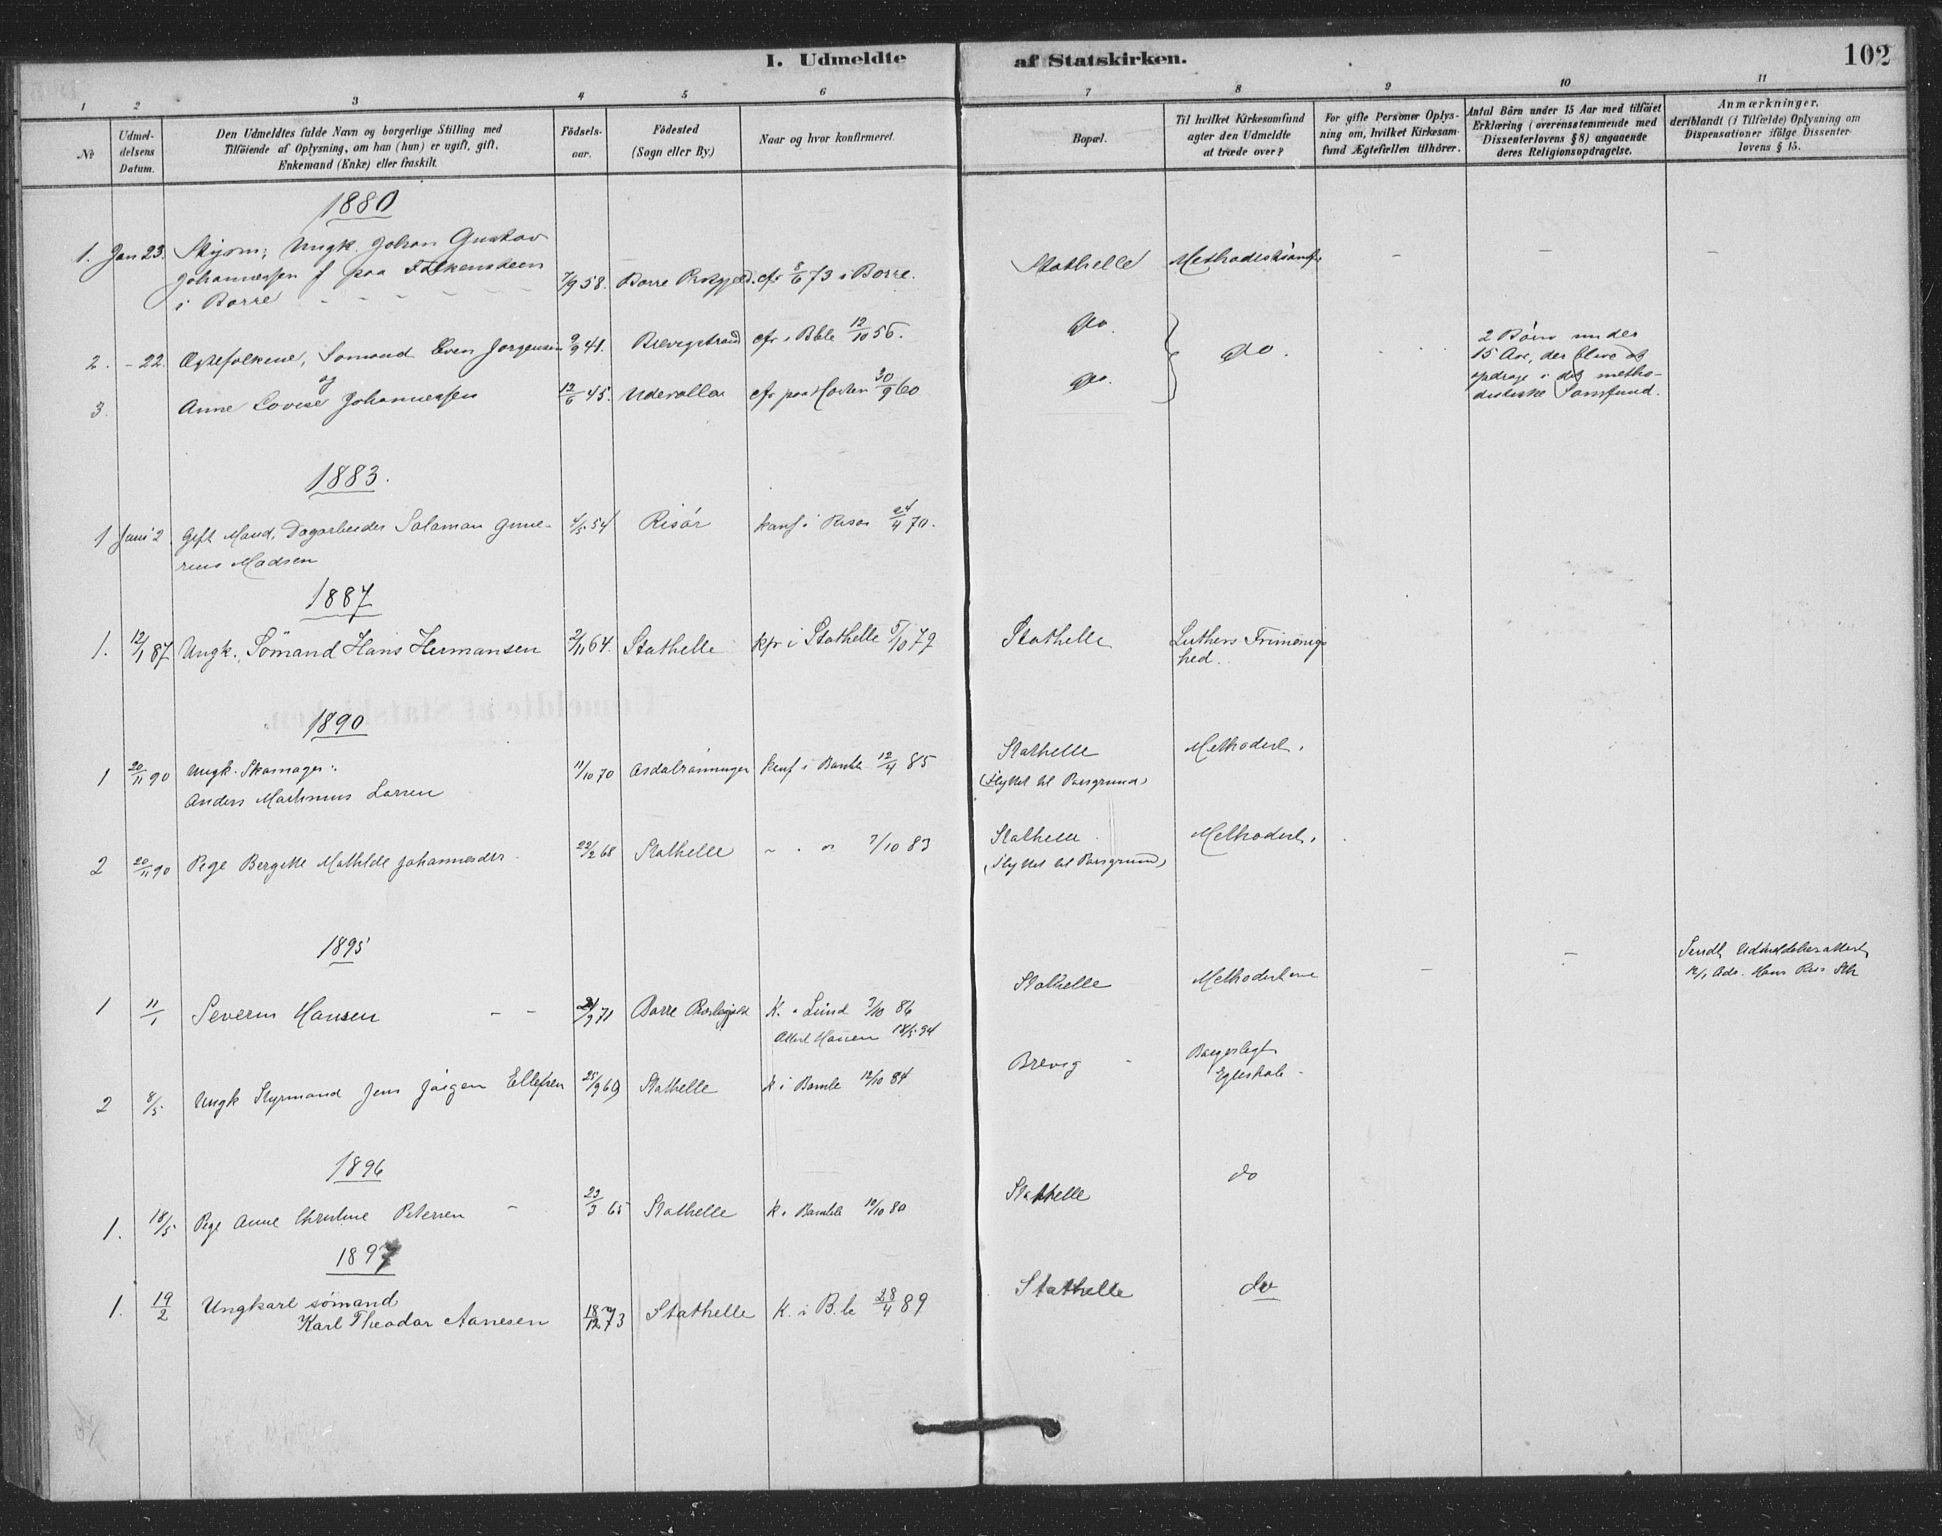 I. Udmeldte af Statskirken. 102
1 2 3 4 5 6 7 8 9 10 11
No
Udmel-
delsens
Datum.
Den Udmeldtes fulde Navn og borgerlige Stilling med
Tilföiende af Oplysning, om han (hun) er ugift, gift,
Enkemand (Enke) eller fraskilt.
Födsels-
aar.
Födested
(Sogn eller By.)
Naar og hvor konfirmeret.
Bopæl.
Til hvilket Kirkesamfund
agter den Udmeldte
at træde over?
For gifte Personer Oplys-
ning om, hvilket Kirkesam-
fund Ægtefællen tilhörer.
Antal Börn under 15 Aar med tilföiet
Erklæring (overensstemmende med
Dissenterlovens § 8) angaaende
deres Religionsopdragelse.
Anmærkninger,
deriblandt (i Tilfælde) Oplysning om
Dispensationer ifölge Dissenter-
lovens § 15.
1880
1. Jan 23. Ungk. Johan Gustav
Johannessen f paa Falkensteen
i Borre 7/9 58. Borre cfr 8/6 73 i Borre. Stathelle
2. - 22. Ægtefolkene, Sømand Even Jørgensen 9/9 41. Brevigstrand cfr i Bble 12/10 56. do. do.
og
3. Anne Lovise Johannessen 12/6 45. Udevalla cfr paa 30/9 60 do.
2 Børn under
15 Aar, der blive at
opdrage i det metho-
distiske Samfund.
1883.
1 Juni 2. Gift Mand, Dagarbeider Salamon Gune-
rius Madsen 4/5 54 Risör konf i Risør 24/4 70.
1887
1. 12/1 87 Ungk., Sömand Hans Hermansen 2/11 64. Stathelle kfr i Stathelle 5/10 79 Stathelle Luthers Frimenig-
hed.
1890
1 20/11 90 Ungk. Skomager
Anders Mathinus Larsen 11/10 70 Asdalrønninger konf i Bamble 12/4 85 Stathelle Methodist.
(flyttet til Porsgrund)
2 20/11 90 Pige Bergitte Mathilde Johannesdtr 22/2 68 Stathelle 7/10 83 Stathelle Methodist.
(flyttet til Porsgrund)
1895
1 11/1 Severin Hansen - - 9 71 Borre K. i Lund 3/10 86 Stathelle Methodisterne - -
Attest 18/5 94
Sendt Udmeldelsesattest
2 8/5 Ungk Styrmand Jens Jörgen Ellefsen 25/9 69 Stathelle K i Bamle 12/10 84 Brevig Borgerligt
Egteskab
1896
1. 18/5 Pige Anne Christine Petersen - 23/3 65 Stathelle K i Bamble 10/10 80 Stathelle do
1897
1. 19/2 Ungkarl sömand
Karl Theodor Aanesen 18/12 73 Stathelle K. i B.le 28/4 89 Stathelle do